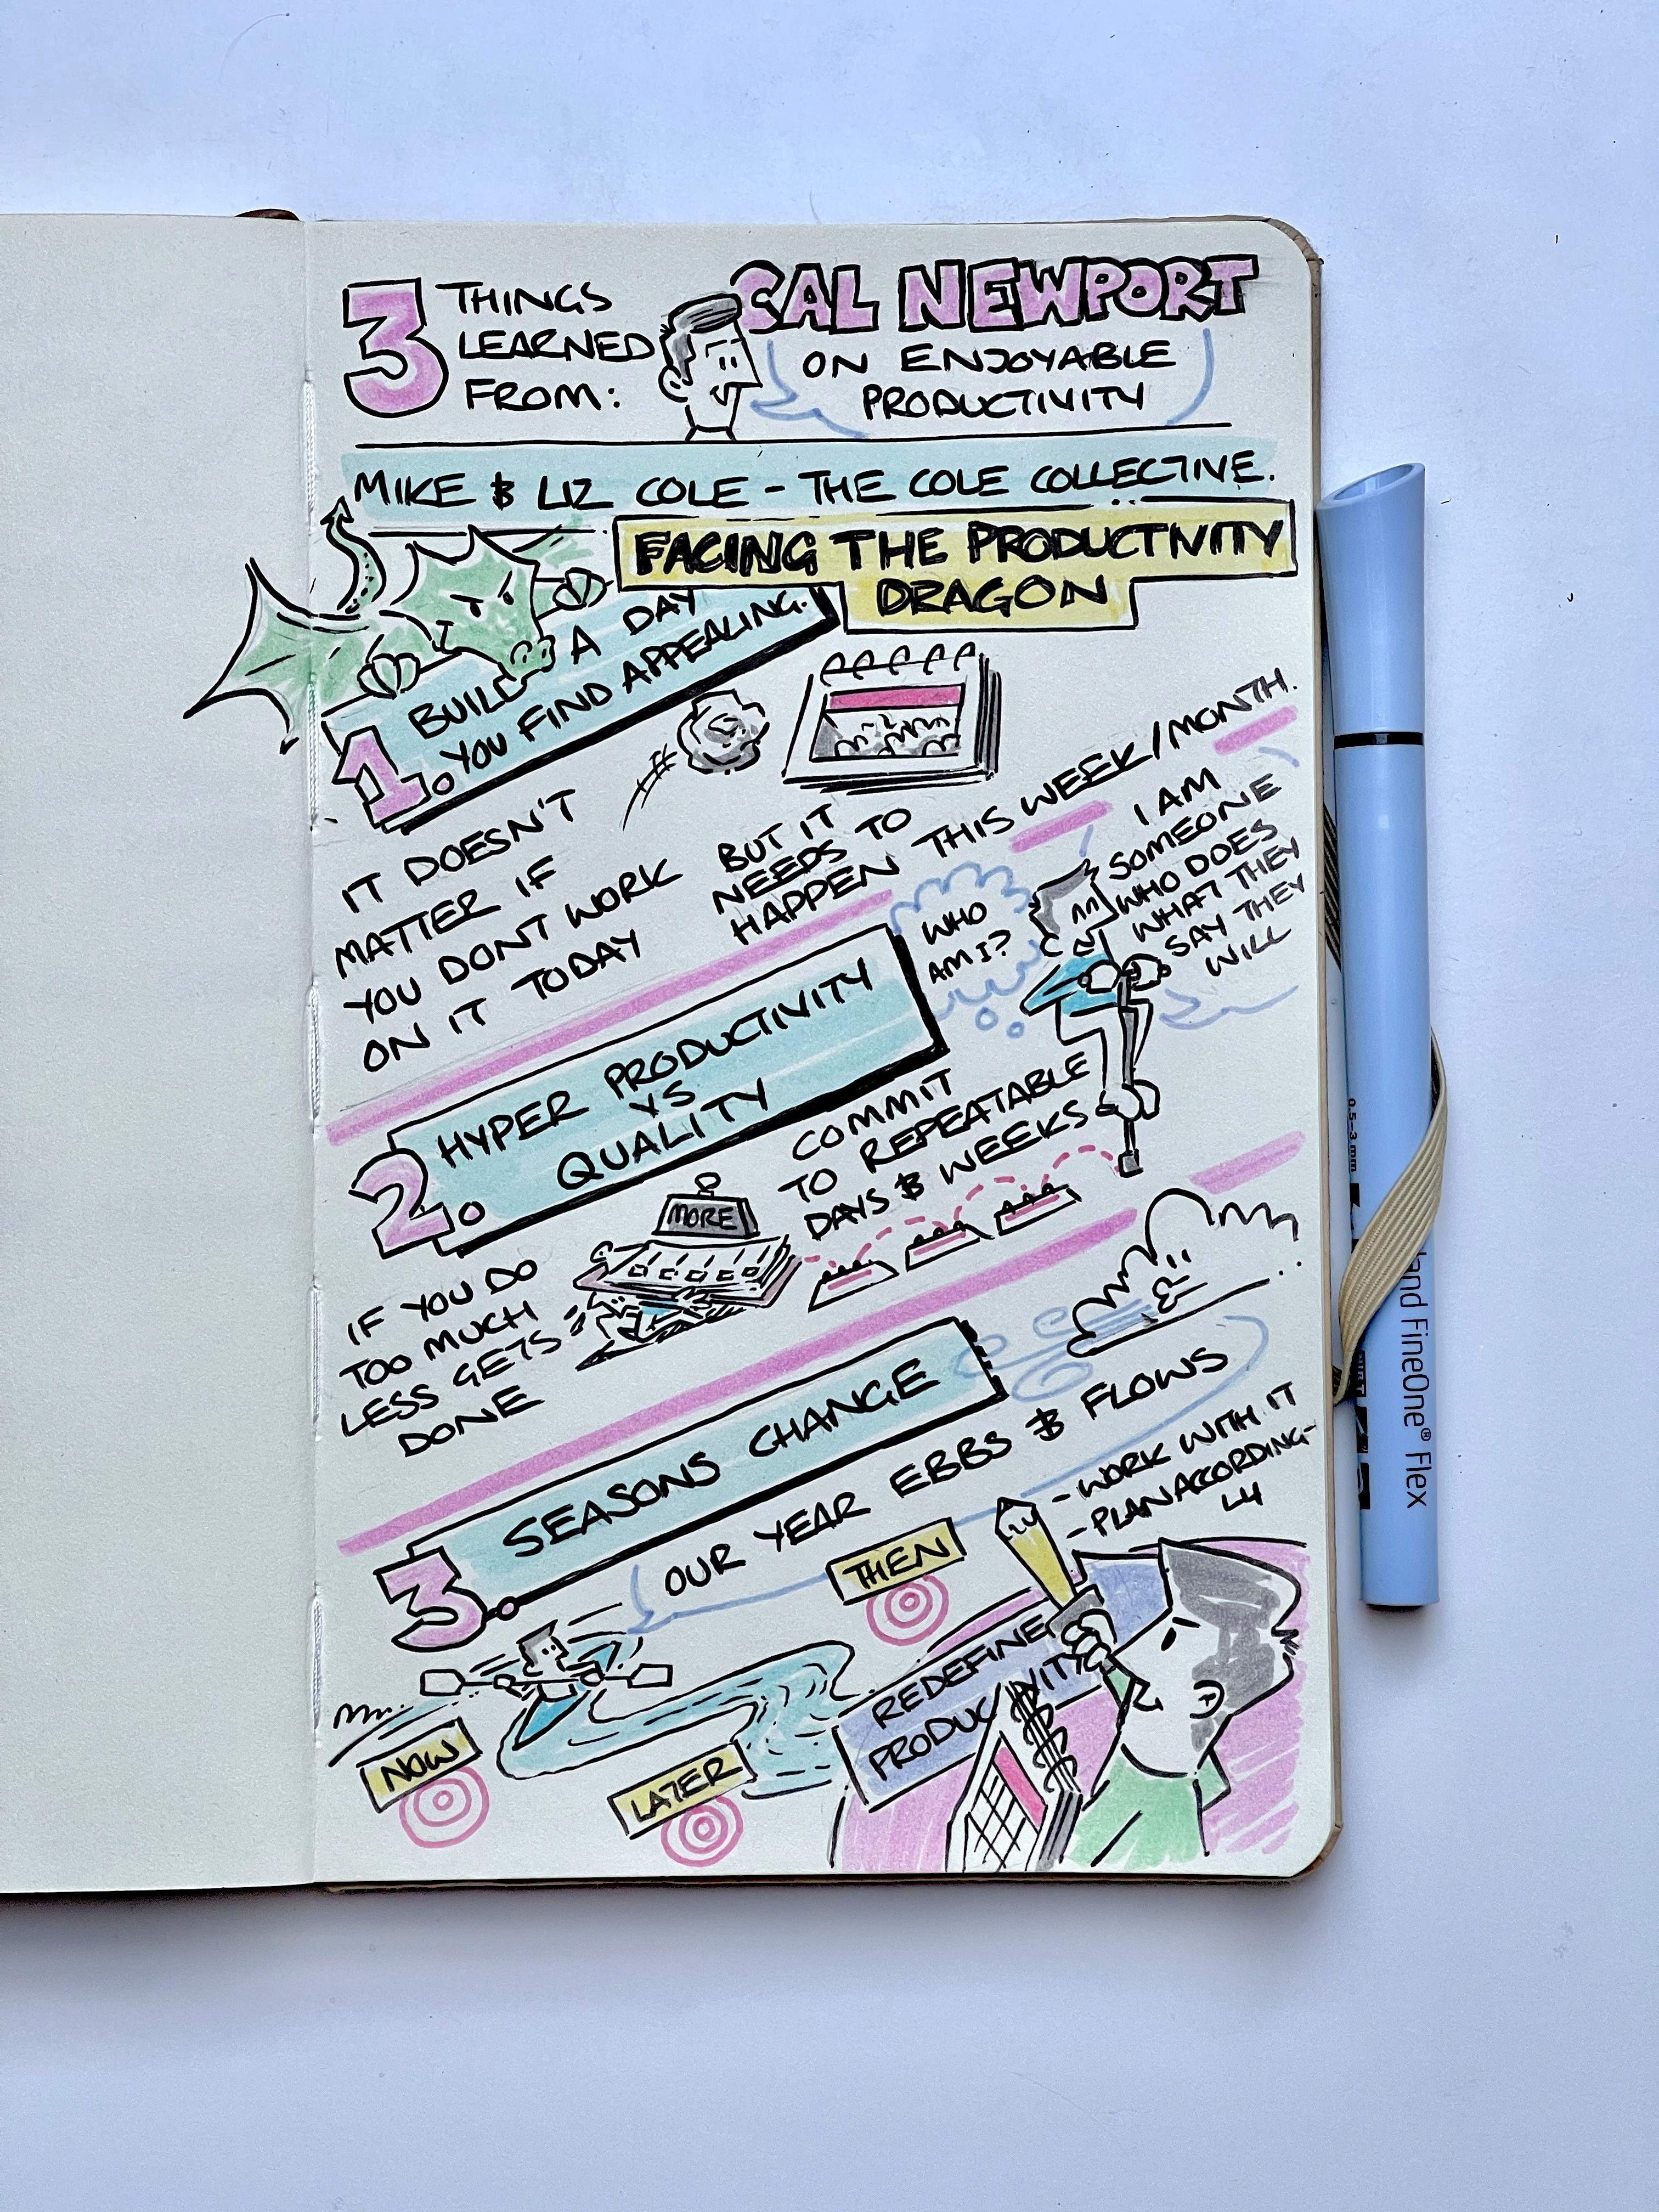 3 THINGS
LEARNED
FROM:
CAL NEWPORT
ON ENJOYABLE
PRODUCTIVITY
MIKE & LIZ COLE - THE COLE COLLECTIVE.
FACING THE PRODUCTIVITY
DRAGON
1. BUILD A DAY
YOU FIND APPEALING.
IT DOESN'T
MATTER IF
YOU DONT WORK
ON IT TODAY
BUT IT
NEEDS TO
HAPPEN THIS WEEK/MONTH.
WHO
AM I?
I AM
SOMEONE
WHO DOES
WHAT THEY
SAY THEY
WILL
2. HYPER PRODUCTIVITY
VS
QUALITY
IF YOU DO
TOO MUCH
LESS GETS
DONE
MORE
COMMIT
TO REPEATABLE
DAYS & WEEKS
3. SEASONS CHANGE
OUR YEAR EBBS & FLOWS
- WORK WITH IT
- PLAN ACCORDING-
LY
THEN
NOW
LATER
REDEFINE
PRODUCTIVITY
0.5-3 mm
and FineOne® Flex